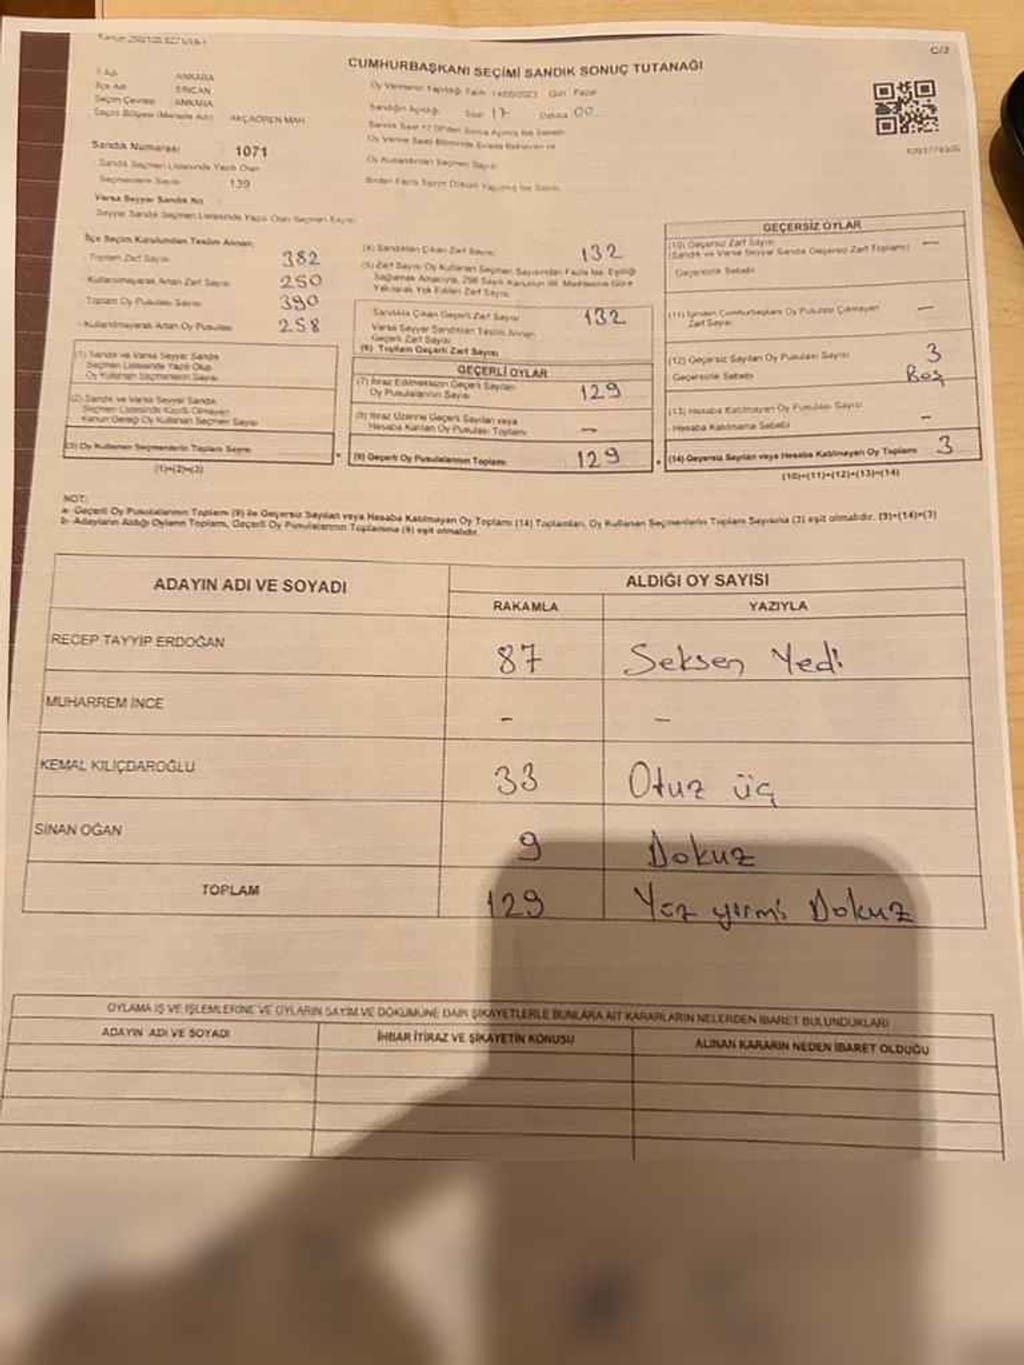 C/2
CUMHURBAŞKANI SEÇİMİ SANDIK SONUÇ TUTANAĞI
İl Adı ANKARA
İlçe Adı SİNCAN
Seçim Çevresi ANKARA
Seçim Bölgesi (Mahalle Adı) AKÇAÖREN MAH.
Sandık Numarası 1071
Sandık Seçmen Listesinde Yazılı Olan
Seçmenlerin Sayısı 139
Varsa Seyyar Sandık No
Seyyar Sandık Seçmen Listesinde Yazılı Olan Seçmen Sayısı
Oy Vermenin Yapıldığı Tarih 14/05/2023 Gün Pazar
Sandığın Açıldığı Saat 17 Dakika 00
Oy Kullandırılan Seçmen Sayısı
İlçe Seçim Kurulundan Teslim Alınan;
Toplam Zarf Sayısı 382
Kullanılmayarak Artan Zarf Sayısı 250
Toplam Oy Pusulası Sayısı 390
Kullanılmayarak Artan Oy Pusulası 258
(1) Sandık ve Varsa Seyyar Sandık
Seçmen Listesinde Yazılı Olup
Oy Kullanan Seçmenlerin Sayısı
(2) Sandık ve Varsa Seyyar Sandık
Seçmen Listesinde Kayıtlı Olmayan
Kanun Gereği Oy Kullanan Seçmen Sayısı
(3) Oy Kullanan Seçmenlerin Toplam Sayısı
(1)+(2)=(3)
(4) Sandıktan Çıkan Zarf Sayısı 132
(5) Zarf Sayısı Oy Kullanan Seçmen Sayısından Fazla İse, Eşitliği
Sağlamak Amacıyla, 298 Sayılı Kanunun 98. Maddesine Göre
Yakılarak Yok Edilen Zarf Sayısı
Sandıkta Çıkan Geçerli Zarf Sayısı 132
Varsa Seyyar Sandıktan Teslim Alınan
Geçerli Zarf Sayısı
(6) Toplam Geçerli Zarf Sayısı
GEÇERLİ OYLAR
(7) İtiraz Edilmeksizin Geçerli Sayılan
Oy Pusulalarının Sayısı 129
(8) İtiraz Üzerine Geçerli Sayılan veya
Hesaba Katılan Oy Pusulası Toplamı –
(9) Geçerli Oy Pusulalarının Toplamı 129
GEÇERSİZ OYLAR
(10) Geçersiz Zarf Sayısı –
(Sandık ve Varsa Seyyar Sandık Geçersiz Zarf Toplamı)
Geçersizlik Sebebi
(11) İçinden Cumhurbaşkanı Oy Pusulası Çıkmayan –
Zarf Sayısı
(12) Geçersiz Sayılan Oy Pusulası Sayısı 3
Geçersizlik Sebebi Boş
(13) Hesaba Katılmayan Oy Pusulası Sayısı –
Hesaba Katılmama Sebebi
(14) Geçersiz Sayılan veya Hesaba Katılmayan Oy Toplamı 3
(10)+(11)+(12)+(13)=(14)
NOT:
a- Geçerli Oy Pusulalarının Toplamı (9) ile Geçersiz Sayılan veya Hesaba Katılmayan Oy Toplamı (14) Toplamları, Oy Kullanan Seçmenlerin Toplam Sayısına (3) eşit olmalıdır. (9)+(14)=(3)
b- Adayların Aldığı Oyların Toplamı, Geçerli Oy Pusulalarının Toplamına (9) eşit olmalıdır.
ADAYIN ADI VE SOYADI ALDIĞI OY SAYISI
RAKAMLA YAZIYLA
RECEP TAYYİP ERDOĞAN 87 Seksen Yedi
MUHARREM İNCE - –
KEMAL KILIÇDAROĞLU 33 Otuz üç
SİNAN OĞAN 9 Dokuz
TOPLAM 129 Yüz yirmi Dokuz
OYLAMA İŞ VE İŞLEMLERİNE VE OYLARIN SAYIM VE DÖKÜMÜNE DAİR ŞİKAYETLERLE BUNLARA AİT KARARLARIN NELERDEN İBARET BULUNDUKLARI
ADAYIN ADI VE SOYADI İHBAR İTİRAZ VE ŞİKAYETİN KONUSU ALINAN KARARIN NEDEN İBARET OLDUĞU